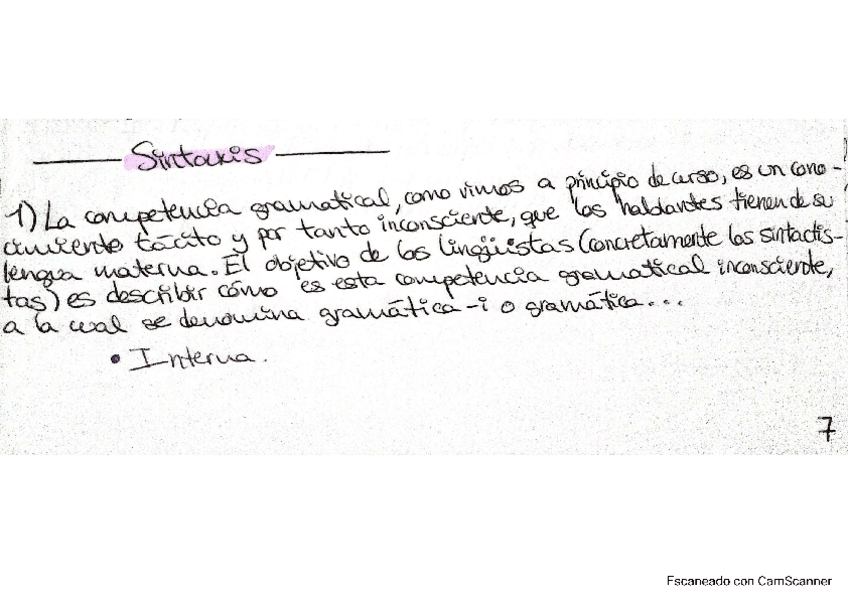 Sintaxis
1) La competencia gramatical, como vimos a principio de curso, es un cono-
cimiento tácito y por tanto inconsciente, que los hablantes tienen de su
lengua materna. El objetivo de los lingüistas (concretamente los sintactis-
tas) es describir cómo es esta competencia gramatical inconsciente,
a la cual se denomina gramática-i o gramática...
• Interna.
7
Escaneado con CamScanner